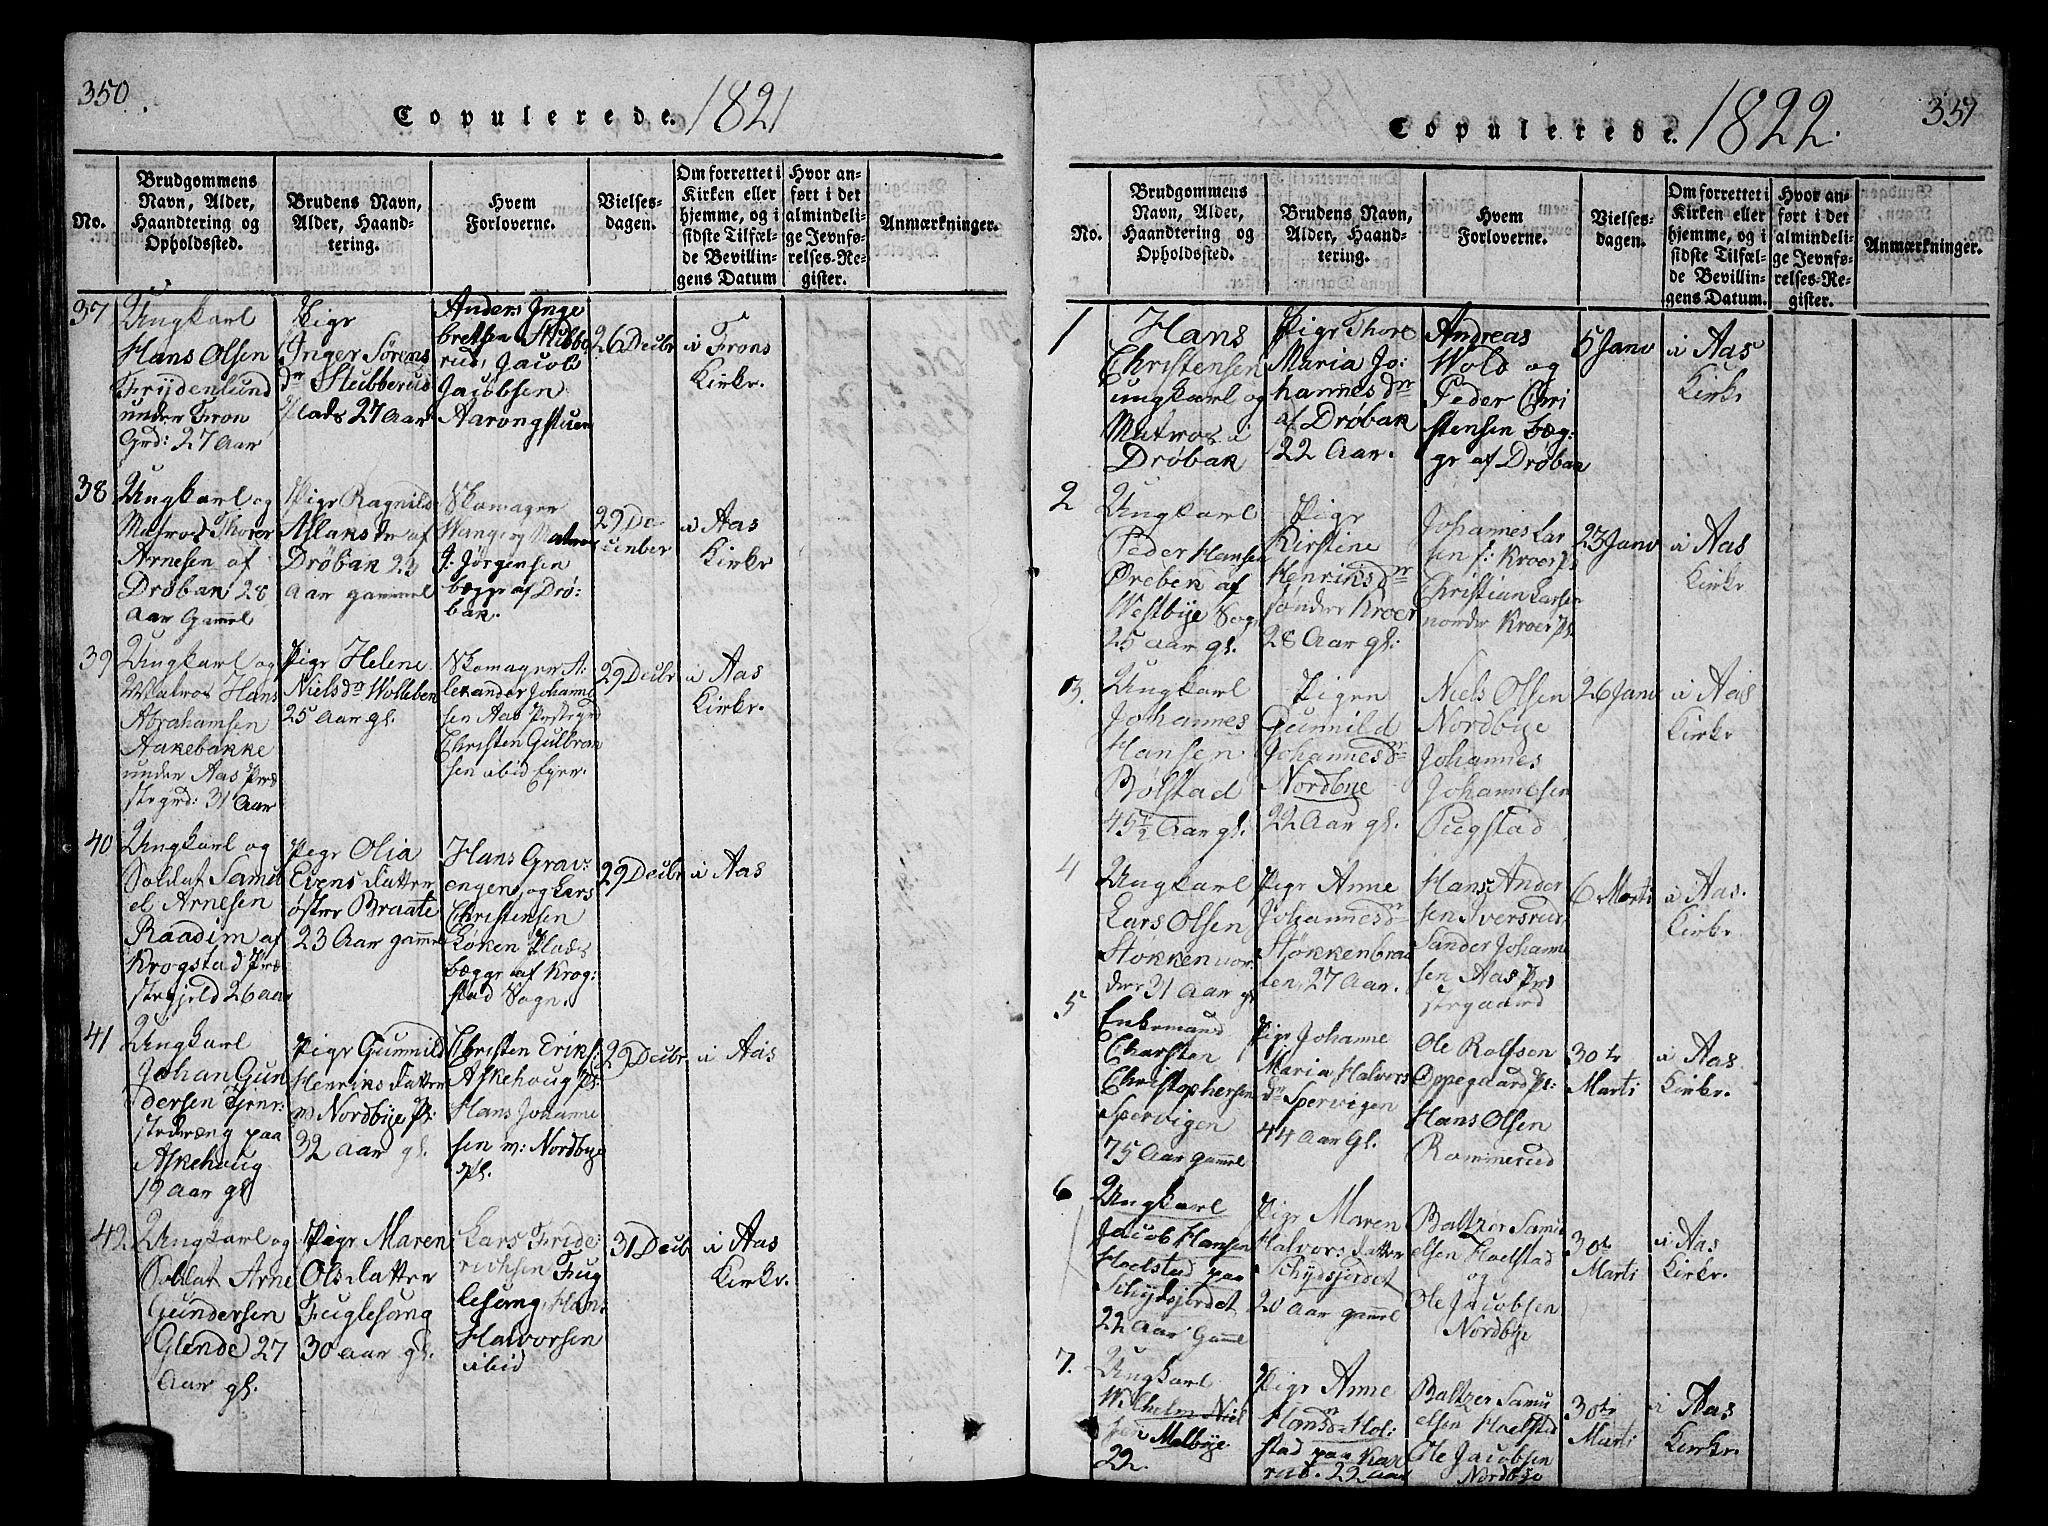 350
Copulerede. 1821
No.
Brudgommens
Navn, Alder,
Haandtering og
Opholdssted.
Brudens Navn,
Alder, Haand-
tering.
Hvem
Forloverne.
Vielses-
dagen.
Om forrettet i
Kirken eller
hjemme, og i
sidste Tilfæl-
de Bevillin-
gens Datum
Hvor an-
ført i det
almindeli-
ge Jevnfø-
relses-Re-
gister.
Anmærkninger.
37
Ungkarl
Hans Olsen
Frydenlund
under Fron
Grd: 27 Aar
Pige
Inger Sørens
dr Stubberud
Plads 27 Aar
Anders Inge
bretsen Stubbe
rud, Jacob
Jacobsen
Aarongstuen
26 Decbr
i Frons
Kirke.
38
Ungkarl og
Matros Thorer
Arnesen af
Drøbak 28
Aar Gammel
Pige Ragnild
Aslaks dr af
Drøbak 23
Aar gammel
Skomager
Wang og Matros
J: Jørgensen
begge af Drø-
bak.
29 De-
cember
i Aas
Kirke
39
Ungkarl og
Matros Hans
Abrahamsen
Aakebakke
under Aas Præ
stegrd: 31 Aar
Pige Helene
Niels dr Wolleben
25 Aar gl.
Skomager A:
lexander Johanne
sen Aas Præstegrd
Christen Gulbran
sen ibid Eger.
29 Decbr
i Aas
Kirke.
40
Ungkarl og
Soldat Samu
el Arnesen
Raadim af
Krogstad Præ
stegjeld 26 Aar
Pige Olia
Evens datter
øster Braate
23 Aar gammel
Hans Grav:
engen, og Lars
Christensen
Løken Plads
begge af Krog:
stad Sogn.
29 Decbr
i Aas
41
Ungkarl
Johan Gun
dersen Tjene:
stedreng paa
Askehoug
19 Aar gl
Pige Gunnild
Henriks datter
v Nordbye Pl:
32 Aar gl.
Christen Erik s:
Askehoug Pl:
Hans Johanne
sen v: Nordbye
pl.
29 Decbr
i Aas
42
Ungkarl og
Soldat Arne
Gundersen
Glende 27
Aar gl.
Pige Maren
Ols datter
Fuglesang
30 Aar gl.
Lars Fride:
richsen Fug
lesang, Hans
Halvorsen
ibid
31 Decbr
i Aas
Kirke.
351
Copulerede. 1822.
No.
Brudgommens
Navn, Alder,
Haandtering og
Opholdssted.
Brudens Navn,
Alder, Haand-
tering.
Hvem
Forloverne.
Vielses-
dagen.
Om forrettet i
Kirken eller
hjemme, og i
sidste Tilfæl-
de Bevillin-
gens Datum.
Hvor an-
ført i det
almindeli-
ge Jevnfø-
relses-Re-
gister.
Anmærkninger.
1
Hans
Christensen
ungkarl og
Matros i
Drøbak
Pige Thore
Maria Jo:
hannes dr
af Drøbak
22 Aar.
Andreas
Wold og
Peder Chri
stensen bæg:
ge af Drøbak
5 Janv
i Aas
Kirke
2
Ungkarl
Peder Hansen
Dreben af
Westbye Sog
25 Aar gl.
Pige
Kirstine
Henriks dr
søndre Kroer
28 Aar gl:
Johannes Lar
sen s: Kroer Pl
Christian Larsen
nordre Kroer Pl.
23 Janv
i Aas
Kirke
3.
Ungkarl
Johannes
Hansen
Bølstad
45 1/2 Aar gl.
Pigen
Gunnild
Johannes dr
Nordbye
22 Aar gl.
Niels Olsen
Nordbye
Johannes
Johannesen
Pugstad
26 Janv
i Aas
Kirke
4
Ungkarl
Lars Olsen
Støkken nor-
dre 31 Aar gl
Pige Anne
Johannes dr
Støkkenbraa
ten, 27 Aar.
Hans Ander
sen Iversrud
Sander Johanne
sen Aas Præ
stegaard
6 Marti
i Aas.
Kirke.
5
Enkemand
Charsten
Christophersen
Spervigen
75 Aar gammel
Pige Johanne
Maria Halvors
dr Spervigen
44 Aar Gl.
Ole Rolfsen
Oppegaard Pl:
Hans Olsen
Rommerud
30te
Marti
i Aas
Kirke.
6
Ungkarl
Jacob Hansen
Hoelstad paa
Schydsjordet
22 Aar Gamel
Pige Maren
Halvors datter
Schydsjordet
20 Aar gamel
Baltzer Samu
elsen Hoelstad
og
Ole Jacobsen
Nordbye
30te
Marti
i Aas
Kirke.
7.
Ungkarl
Wilhelm Niel
sen Melbye
22.
Pige Anne
Hans dr Hol:
stad paa Kax
rud. 22 Aar
Baltzer Samu
elsen Hoelstad
Ole Jacobsen
Nordbye
30te
Marti
i Aas
Kirke.